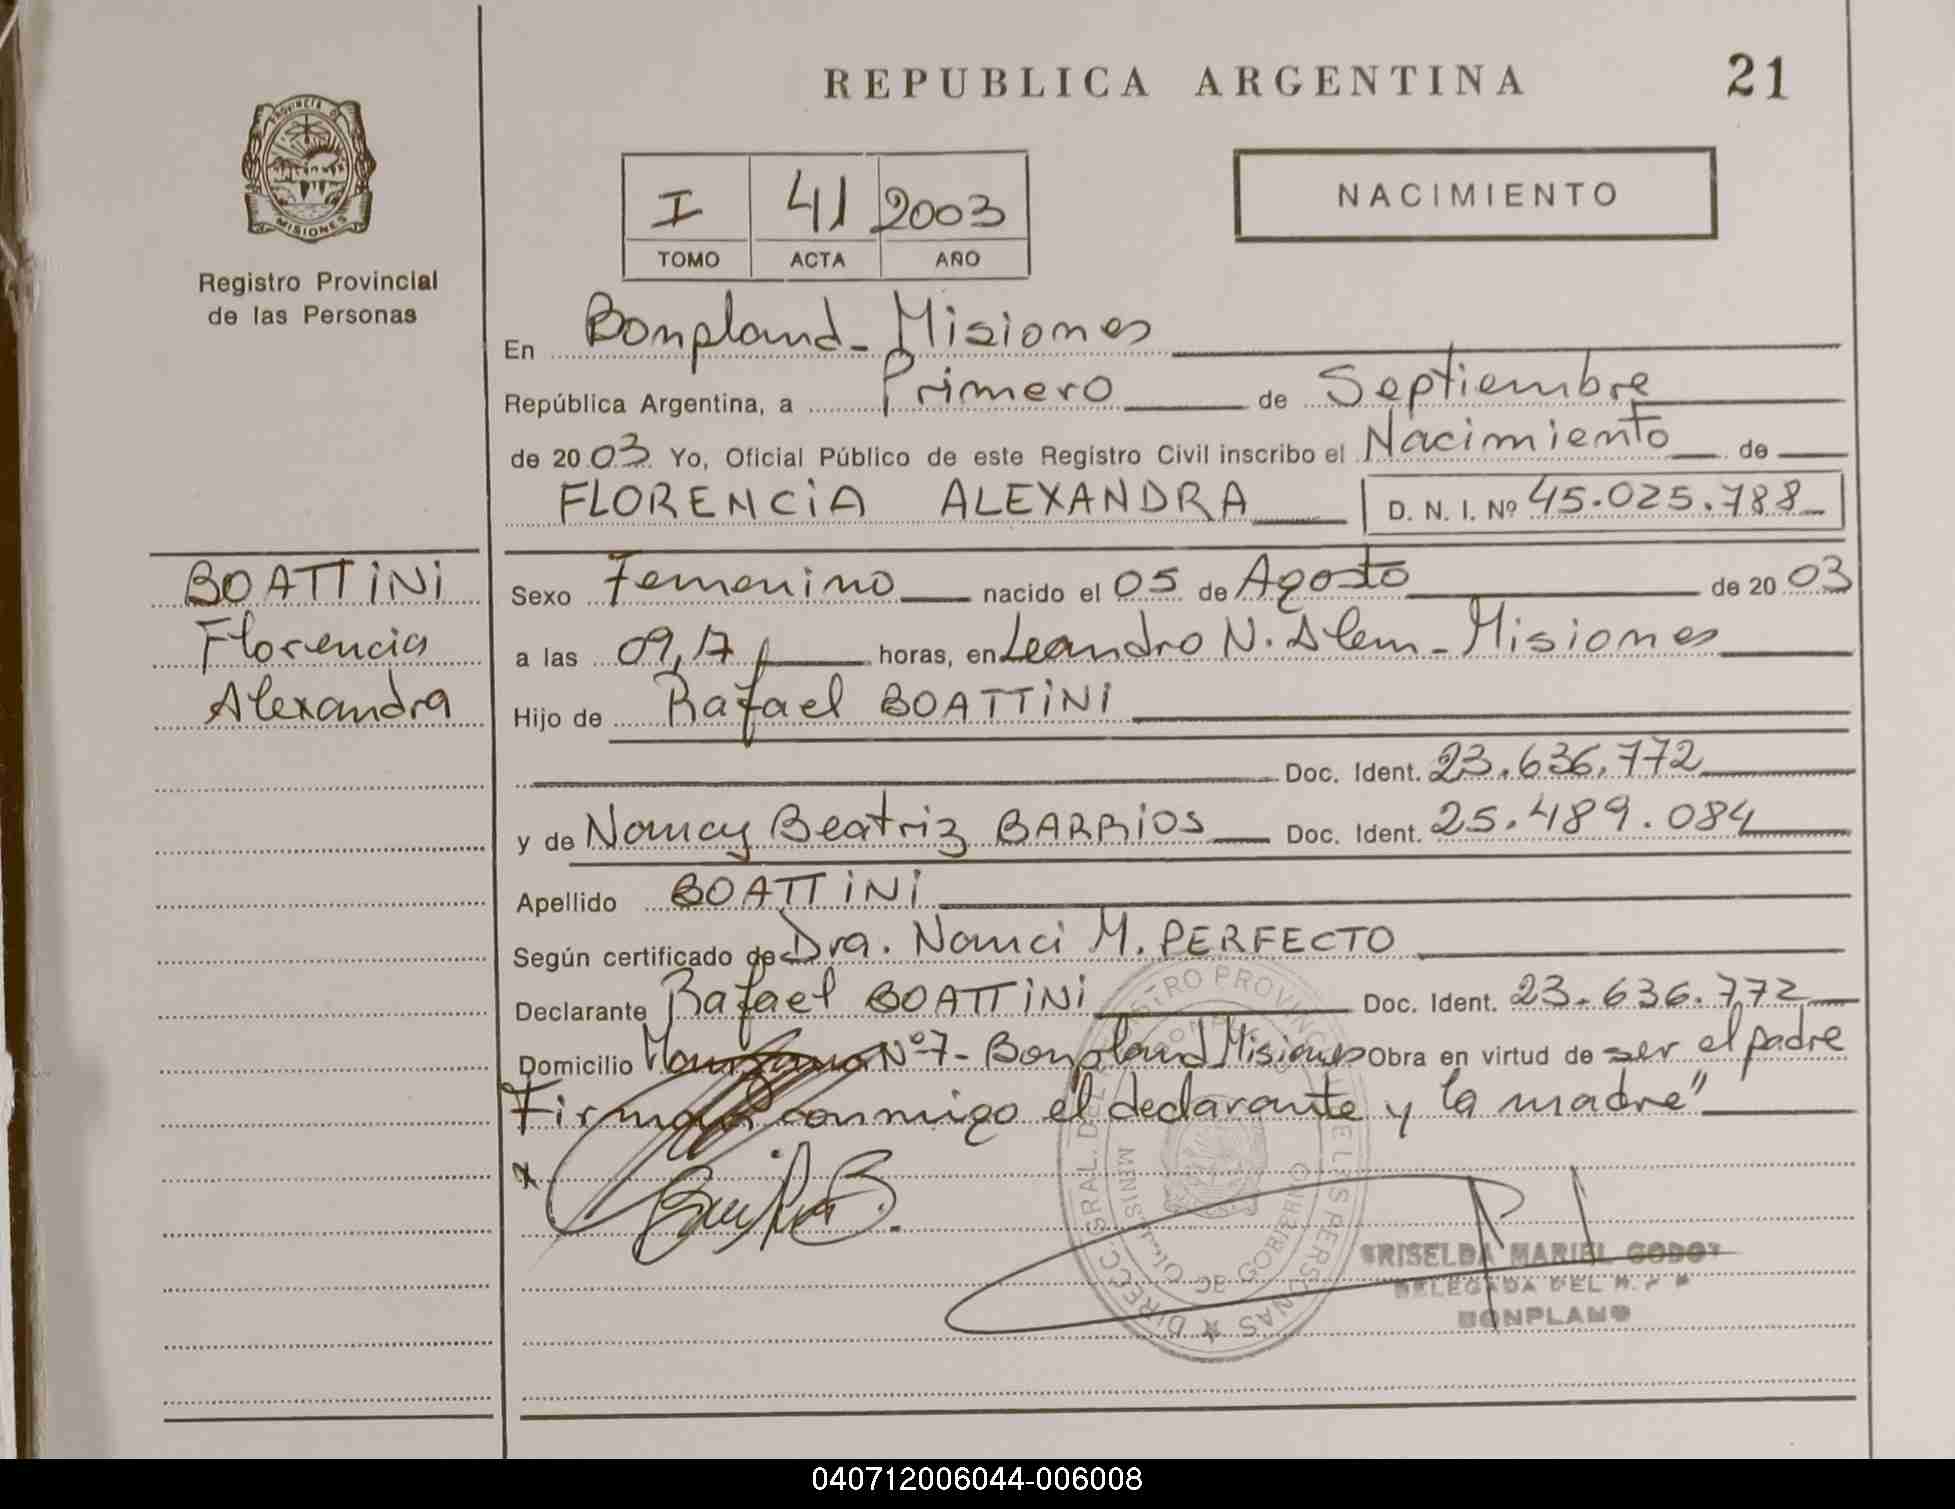 REPUBLICA ARGENTINA
21
PROVINCIA D
MISIONES
Registro Provincial
de las Personas
I 41 2003
TOMO ACTA AÑO
NACIMIENTO
En Bonpland - Misiones
República Argentina, a Primero de Septiembre
de 2003 Yo, Oficial Público de este Registro Civil inscribo el Nacimiento de
FLORENCIA ALEXANDRA D. N. I. Nº 45.025.788
BOATTINI
Florencia
Alexandra
Sexo Femenino nacido el 05 de Agosto de 2003
a las 09,17 horas, en Leandro N. Alem - Misiones
Hijo de Rafael BOATTINI
Doc. Ident. 23.636.772
y de Nancy Beatriz BARRIOS Doc. Ident. 25.489.084
Apellido BOATTINI
Según certificado de Dra. Nanci M. PERFECTO
Declarante Rafael BOATTINI Doc. Ident. 23.636.772
Domicilio Manzana Nº 7 - Bonpland Misiones Obra en virtud de ser el padre
Firman conmigo el declarante y la madre"
GRISELDA MARIEL GODOY
DELEGADA DEL R. P.
BONPLAND
040712006044-006008